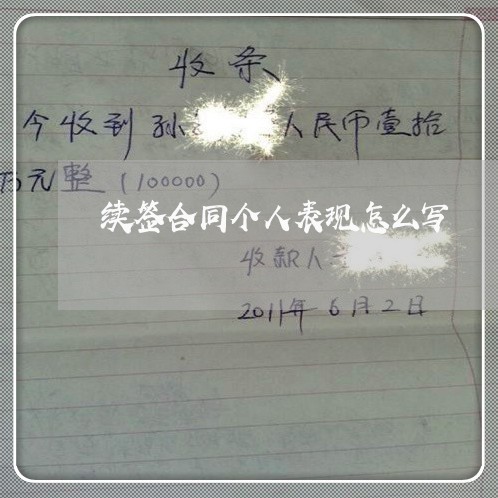 收条
今收到孙 人民币壹拾
万元整(100000)
续签合同个人表现怎么写
收款人
2011年6月2日